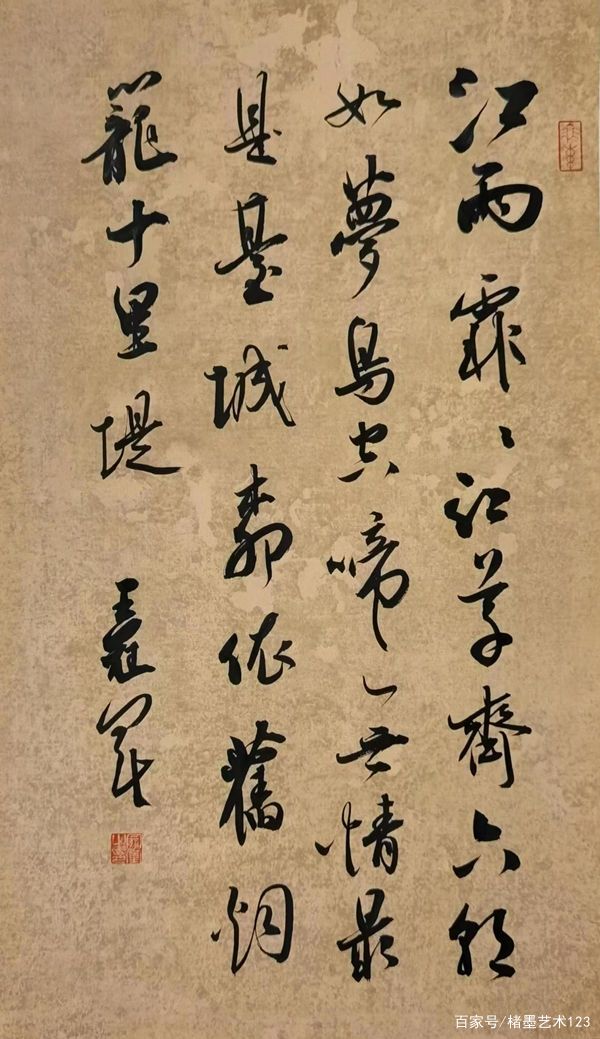 江雨霏〻江草齊六朝
如夢鳥空啼無情最
是臺城柳依舊烟
籠十里堤
王
百家号/楮墨艺术123